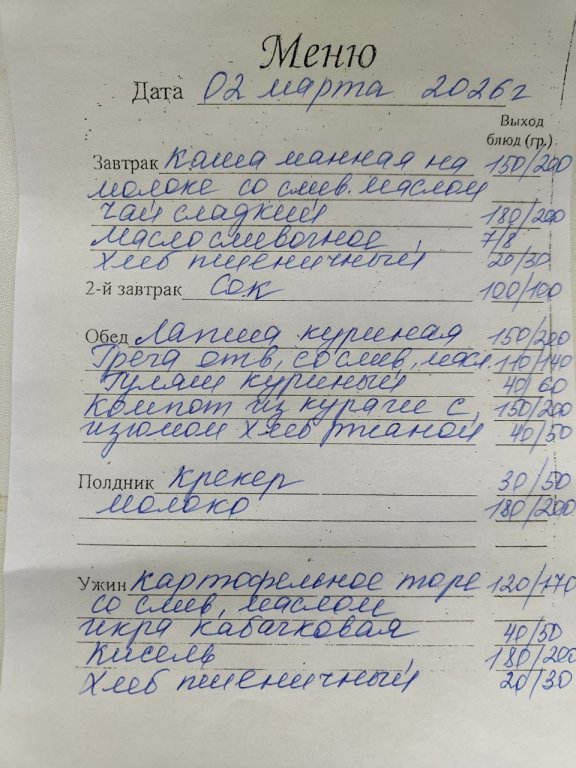 Меню
Дата 02 марта 2026г
Выход
блюд (гр.)
Завтрак Каша манная на 150/200
молоке со слив. маслом
Чай сладкий 180/200
Масло сливочное 7/8
Хлеб пшеничный 20/30
2-й завтрак Сок 100/100
Обед Лапша куриная 150/200
Греча отв, со слив, масл. 110/140
Гуляш куриный 40/60
Компот из кураги с 150/200
изюмом Хлеб ржаной 40/50
Полдник Крекер 30/50
молоко 180/200
Ужин Картофельное пюре 120/170
со слив, маслом
икра кабачковая 40/50
Кисель 180/200
Хлеб пшеничный 20/30